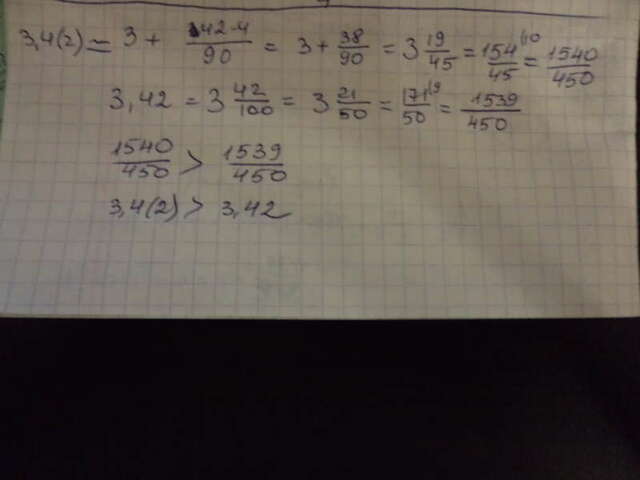 3,4(2) = 3 + 42-4/90 = 3 + 38/90 = 3 19/45 = 154/45 (10 = 1540/450
3,42 = 3 42/100 = 3 21/50 = 171/50 (9 = 1539/450
1540/450 > 1539/450
3,4(2) > 3,42